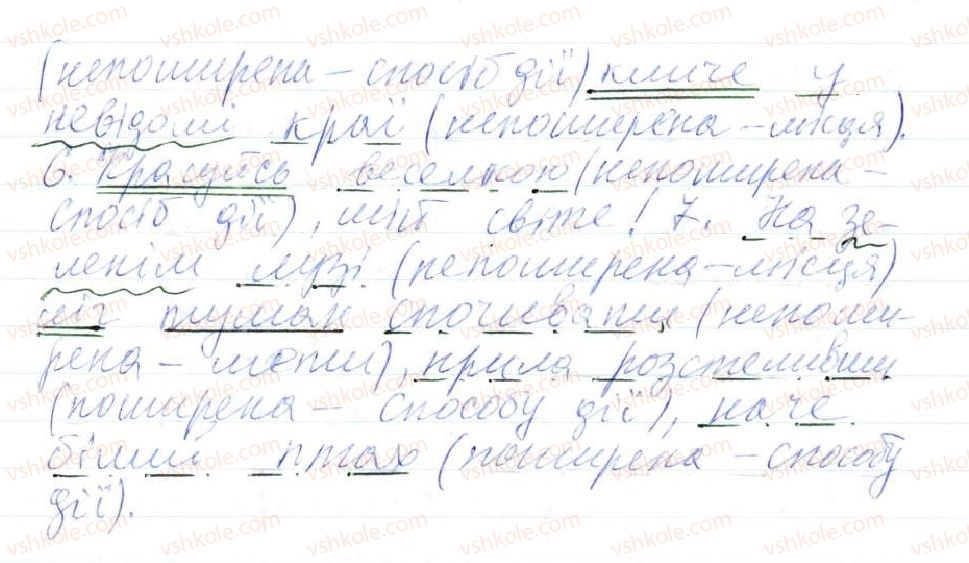 (непоширена – спосіб дії) кличе у
невідомі краї (непоширена – місця).
6. Красуйсь веселкою (непоширена –
спосіб дії), мій світе! 7. На зе-
ленім лузі (непоширена – місця)
ліг туман спочивати (непоши-
рена – мети), крила розстеливши
(поширена – способу дії), наче
білий птах (поширена – способу
дії).
vshkole.com